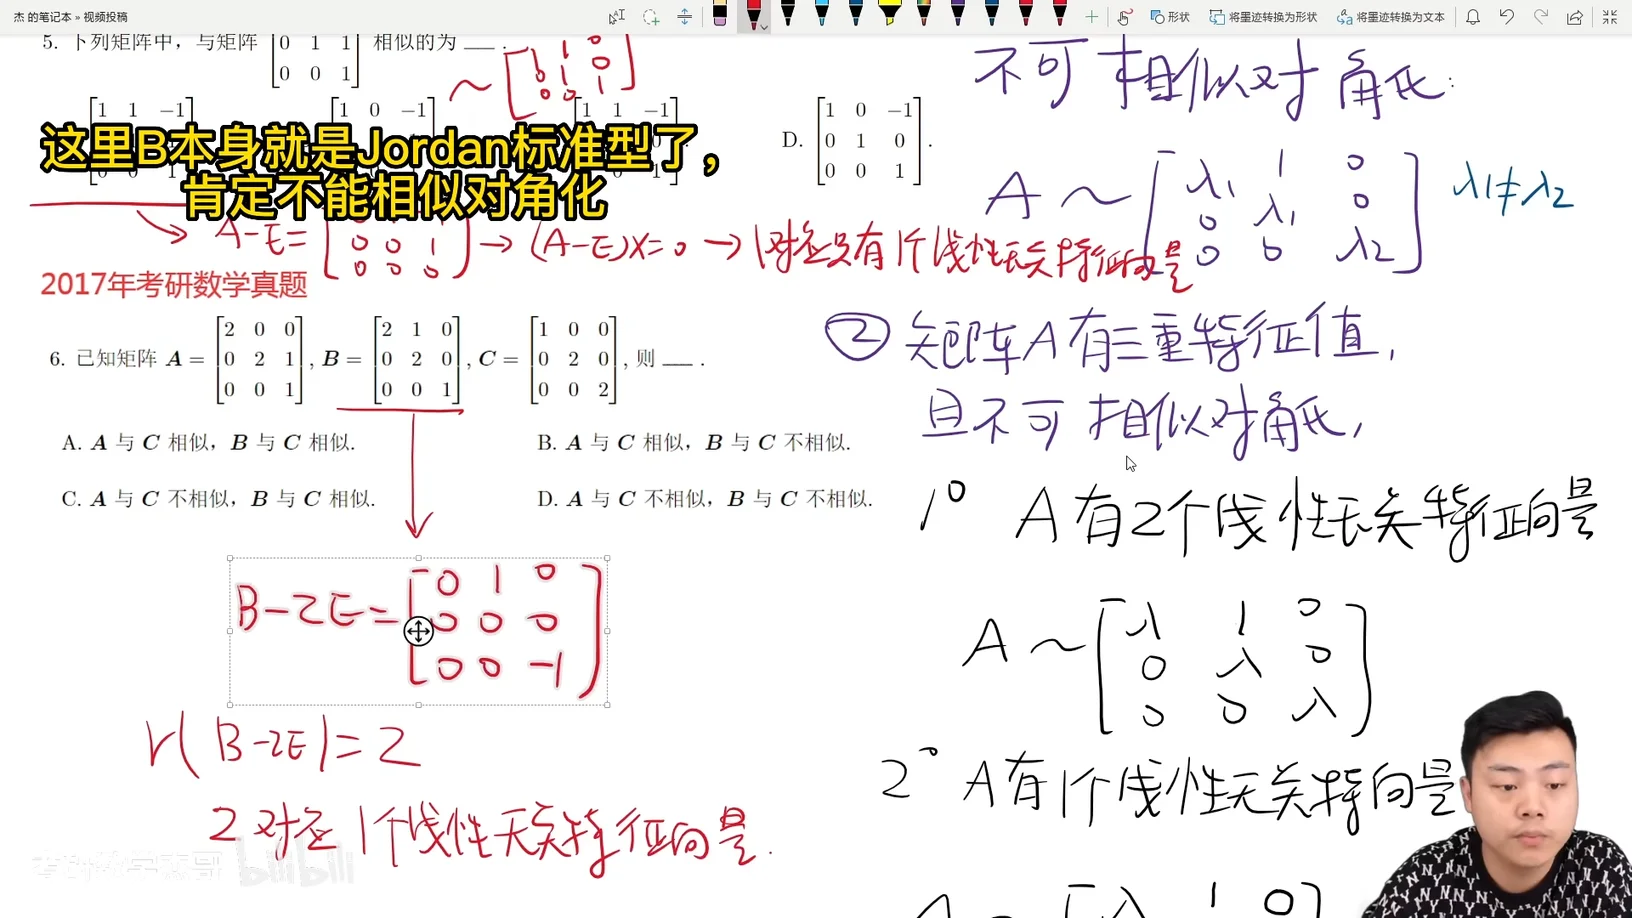 杰 的笔记本 » 视频投稿
形状 将墨迹转换为形状 将墨迹转换为文本
5. 下列矩阵中，与矩阵 [0 1 1; 0 0 1] 相似的为 ___ .
~ [1 1 0; 0 1 1; 0 0 1]
[1 1 −1 [1 0 −1] [1 1 −1]
D. [1 0 −1; 0 1 0; 0 0 1].
这里B本身就是Jordan标准型了，
肯定不能相似对角化
A-E= [0 0 1; 0 0 0] → (A-E)X=0 → 1对应只有1个线性无关特征向量
2017年考研数学真题
6. 已知矩阵 A = [2 0 0; 0 2 1; 0 0 1], B = [2 1 0; 0 2 0; 0 0 1], C = [1 0 0; 0 2 0; 0 0 2], 则 ___ .
A. A 与 C 相似，B 与 C 相似.
B. A 与 C 相似，B 与 C 不相似.
C. A 与 C 不相似，B 与 C 相似.
D. A 与 C 不相似，B 与 C 不相似.
B-2E= [0 1 0; 0 0 0; 0 0 -1]
r(B-2E)=2
2对应1个线性无关特征向量.
考研数学杰哥 bilibili
不可相似对角化:
A ~ [λ1 1 0; 0 λ1 0; 0 0 λ2] λ1≠λ2
② 矩阵A有三重特征值,
且不可相似对角化,
1° A有2个线性无关特征向量
A ~ [λ 1 0; 0 λ 0; 0 0 λ]
2° A有1个线性无关特向量
A ~ [λ 1 0]